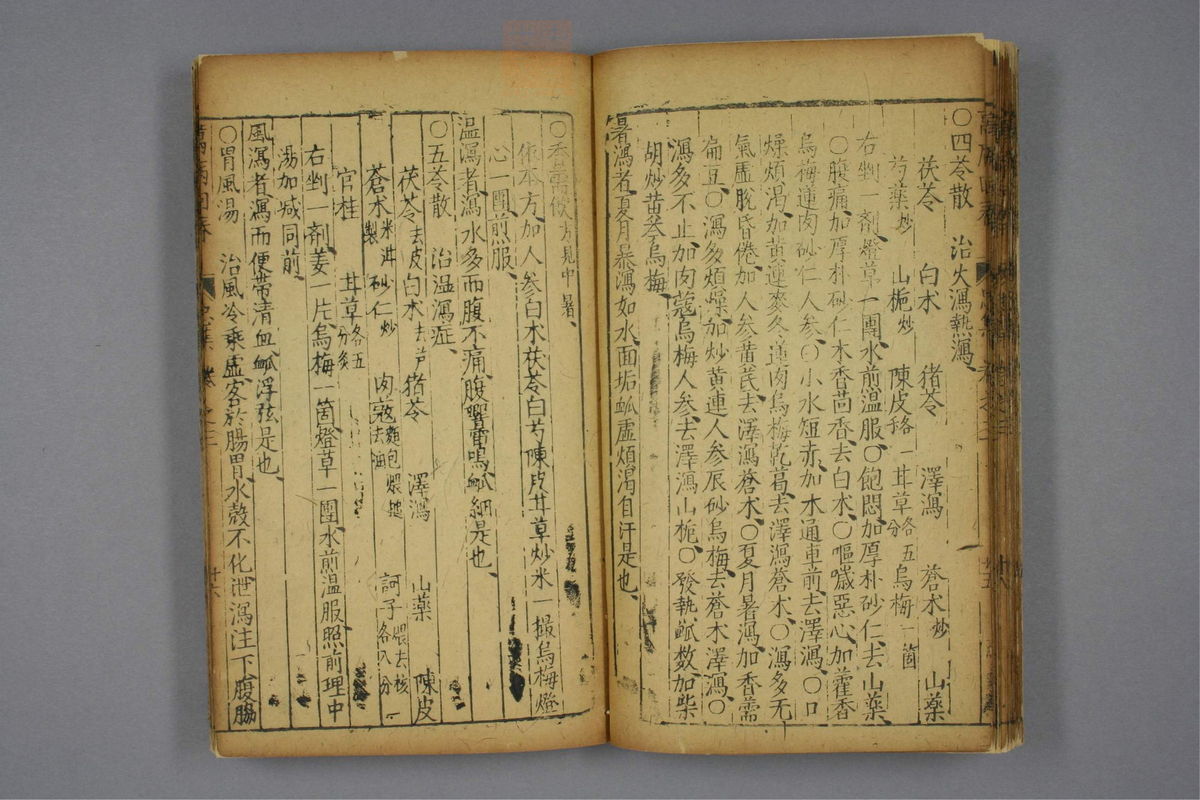 ○四苓散 治火瀉熱瀉
茯苓 白朮 猪苓 澤瀉 蒼朮炒 山藥
芍藥炒 山梔炒 陳皮各一 甘草各五分 烏梅一箇
右剉一劑燈草一團水煎温服○飽悶加厚朴砂仁去山藥
○腹痛加厚朴砂仁木香茴香去白朮○嘔噦惡心加藿香
烏梅蓮肉砂仁人參○小水短赤加木通車前去澤瀉○口
燥煩渴加黄連麥冬蓮肉烏梅乾葛去澤瀉蒼朮○瀉多无
氣虛脫昏倦加人參黄芪去澤瀉蒼朮○夏月暑瀉加香薷
扁豆○瀉多煩燥加炒黄連人參辰砂烏梅去蒼朮澤瀉○
瀉多不止加肉蔻烏梅人參去澤瀉山梔○發熱脉數加柴
胡炒黄芩烏梅
暑瀉者夏月暴瀉如水面垢脉虛煩渴自汗是也
○香薷飲方見中暑
依本方加人參白朮茯苓白芍陳皮甘草炒米一撮烏梅燈
心一團煎服
温瀉者瀉水多而腹不痛腹響雷鳴脉細是也
○五苓散 治温瀉症
茯苓去皮 白朮去芦 猪苓 澤瀉 山藥 陳皮
蒼朮米泔製 砂仁炒 肉蔻麵包煨搥去油 訶子煨去核各八分
官桂 甘草各五分炙
右剉一劑姜一片烏梅一箇燈草一團水煎温服照前理中
湯加减同前
風瀉者瀉而便帶清血脉浮弦是也
○胃風湯 治風冷乘虛客於腸胃水穀不化泄瀉注下腹脇